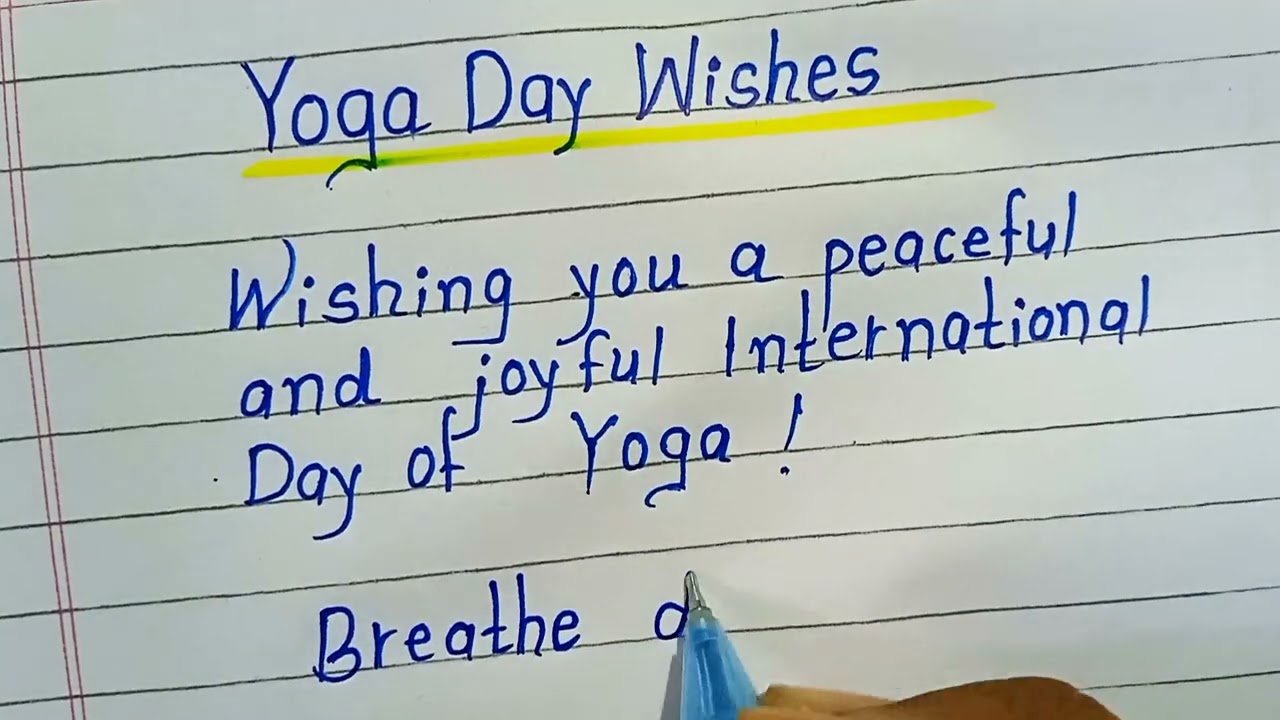 Yoga Day Wishes
Wishing you a peaceful
and joyful International
Day of Yoga !
Breathe